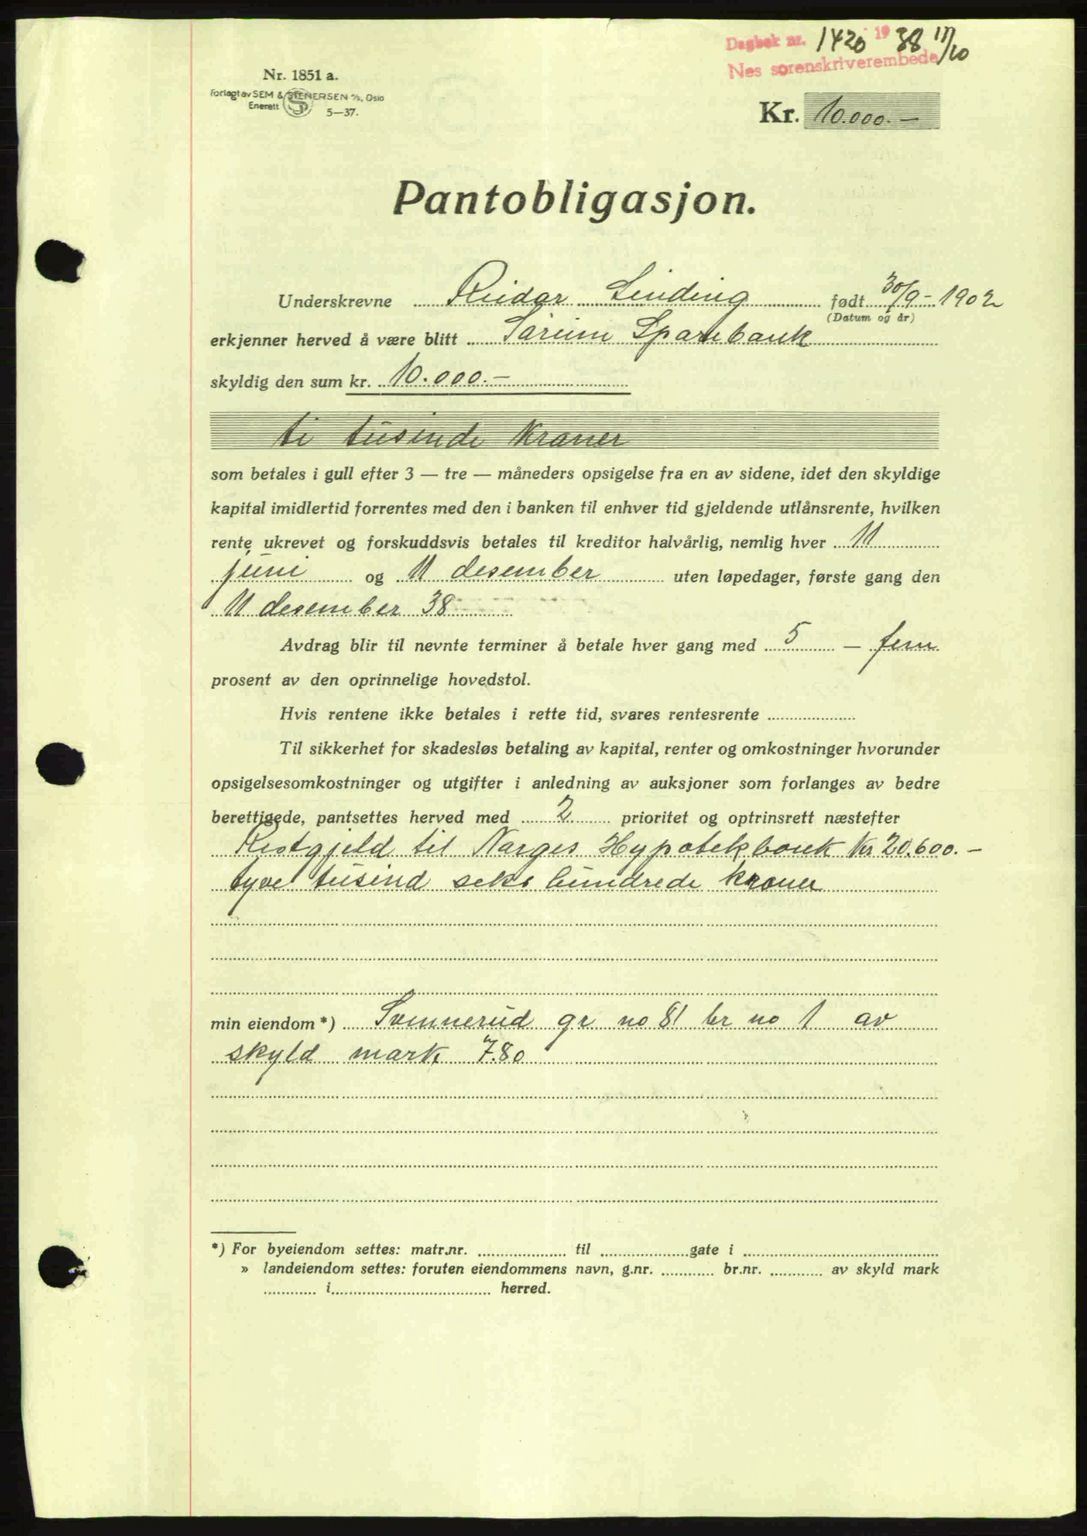 Dagbok nr. 1420 1938 11/10
Nes sorenskriverembede
Nr. 1851 a.
Forlagt av SEM & STENERSEN A/S, Oslo
Enerett
5—37.
Kr. 10.000.—
Pantobligasjon.
Underskrevne Reidar Linding født 30/9-1902
(Datum og år)
erkjenner herved å være blitt Sørum Sparebank
skyldig den sum kr. 10.000.—
ti tusinde kroner
som betales i gull efter 3 — tre — måneders opsigelse fra en av sidene, idet den skyldige
kapital imidlertid forrentes med den i banken til enhver tid gjeldende utlånsrente, hvilken
rente ukrevet og forskuddsvis betales til kreditor halvårlig, nemlig hver 11
juni og 11 desember uten løpedager, første gang den
11 desember 38
Avdrag blir til nevnte terminer å betale hver gang med 5 — fem
prosent av den oprinnelige hovedstol.
Hvis rentene ikke betales i rette tid, svares rentesrente
Til sikkerhet for skadesløs betaling av kapital, renter og omkostninger hvorunder
opsigelsesomkostninger og utgifter i anledning av auksjoner som forlanges av bedre
berettigede, pantsettes herved med 2 prioritet og optrinsrett næstefter
Restgjeld til Norges Hypotekbank kr 20.600.—
tyve tusind seks hundrede kroner
min eiendom *) Svennerud gr no 81 br no 1 av
skyld mark 7.80
*) For byeiendom settes: matr.nr. til gate i
» landeiendom settes: foruten eiendommens navn, g.nr. br.nr. av skyld mark
i herred.